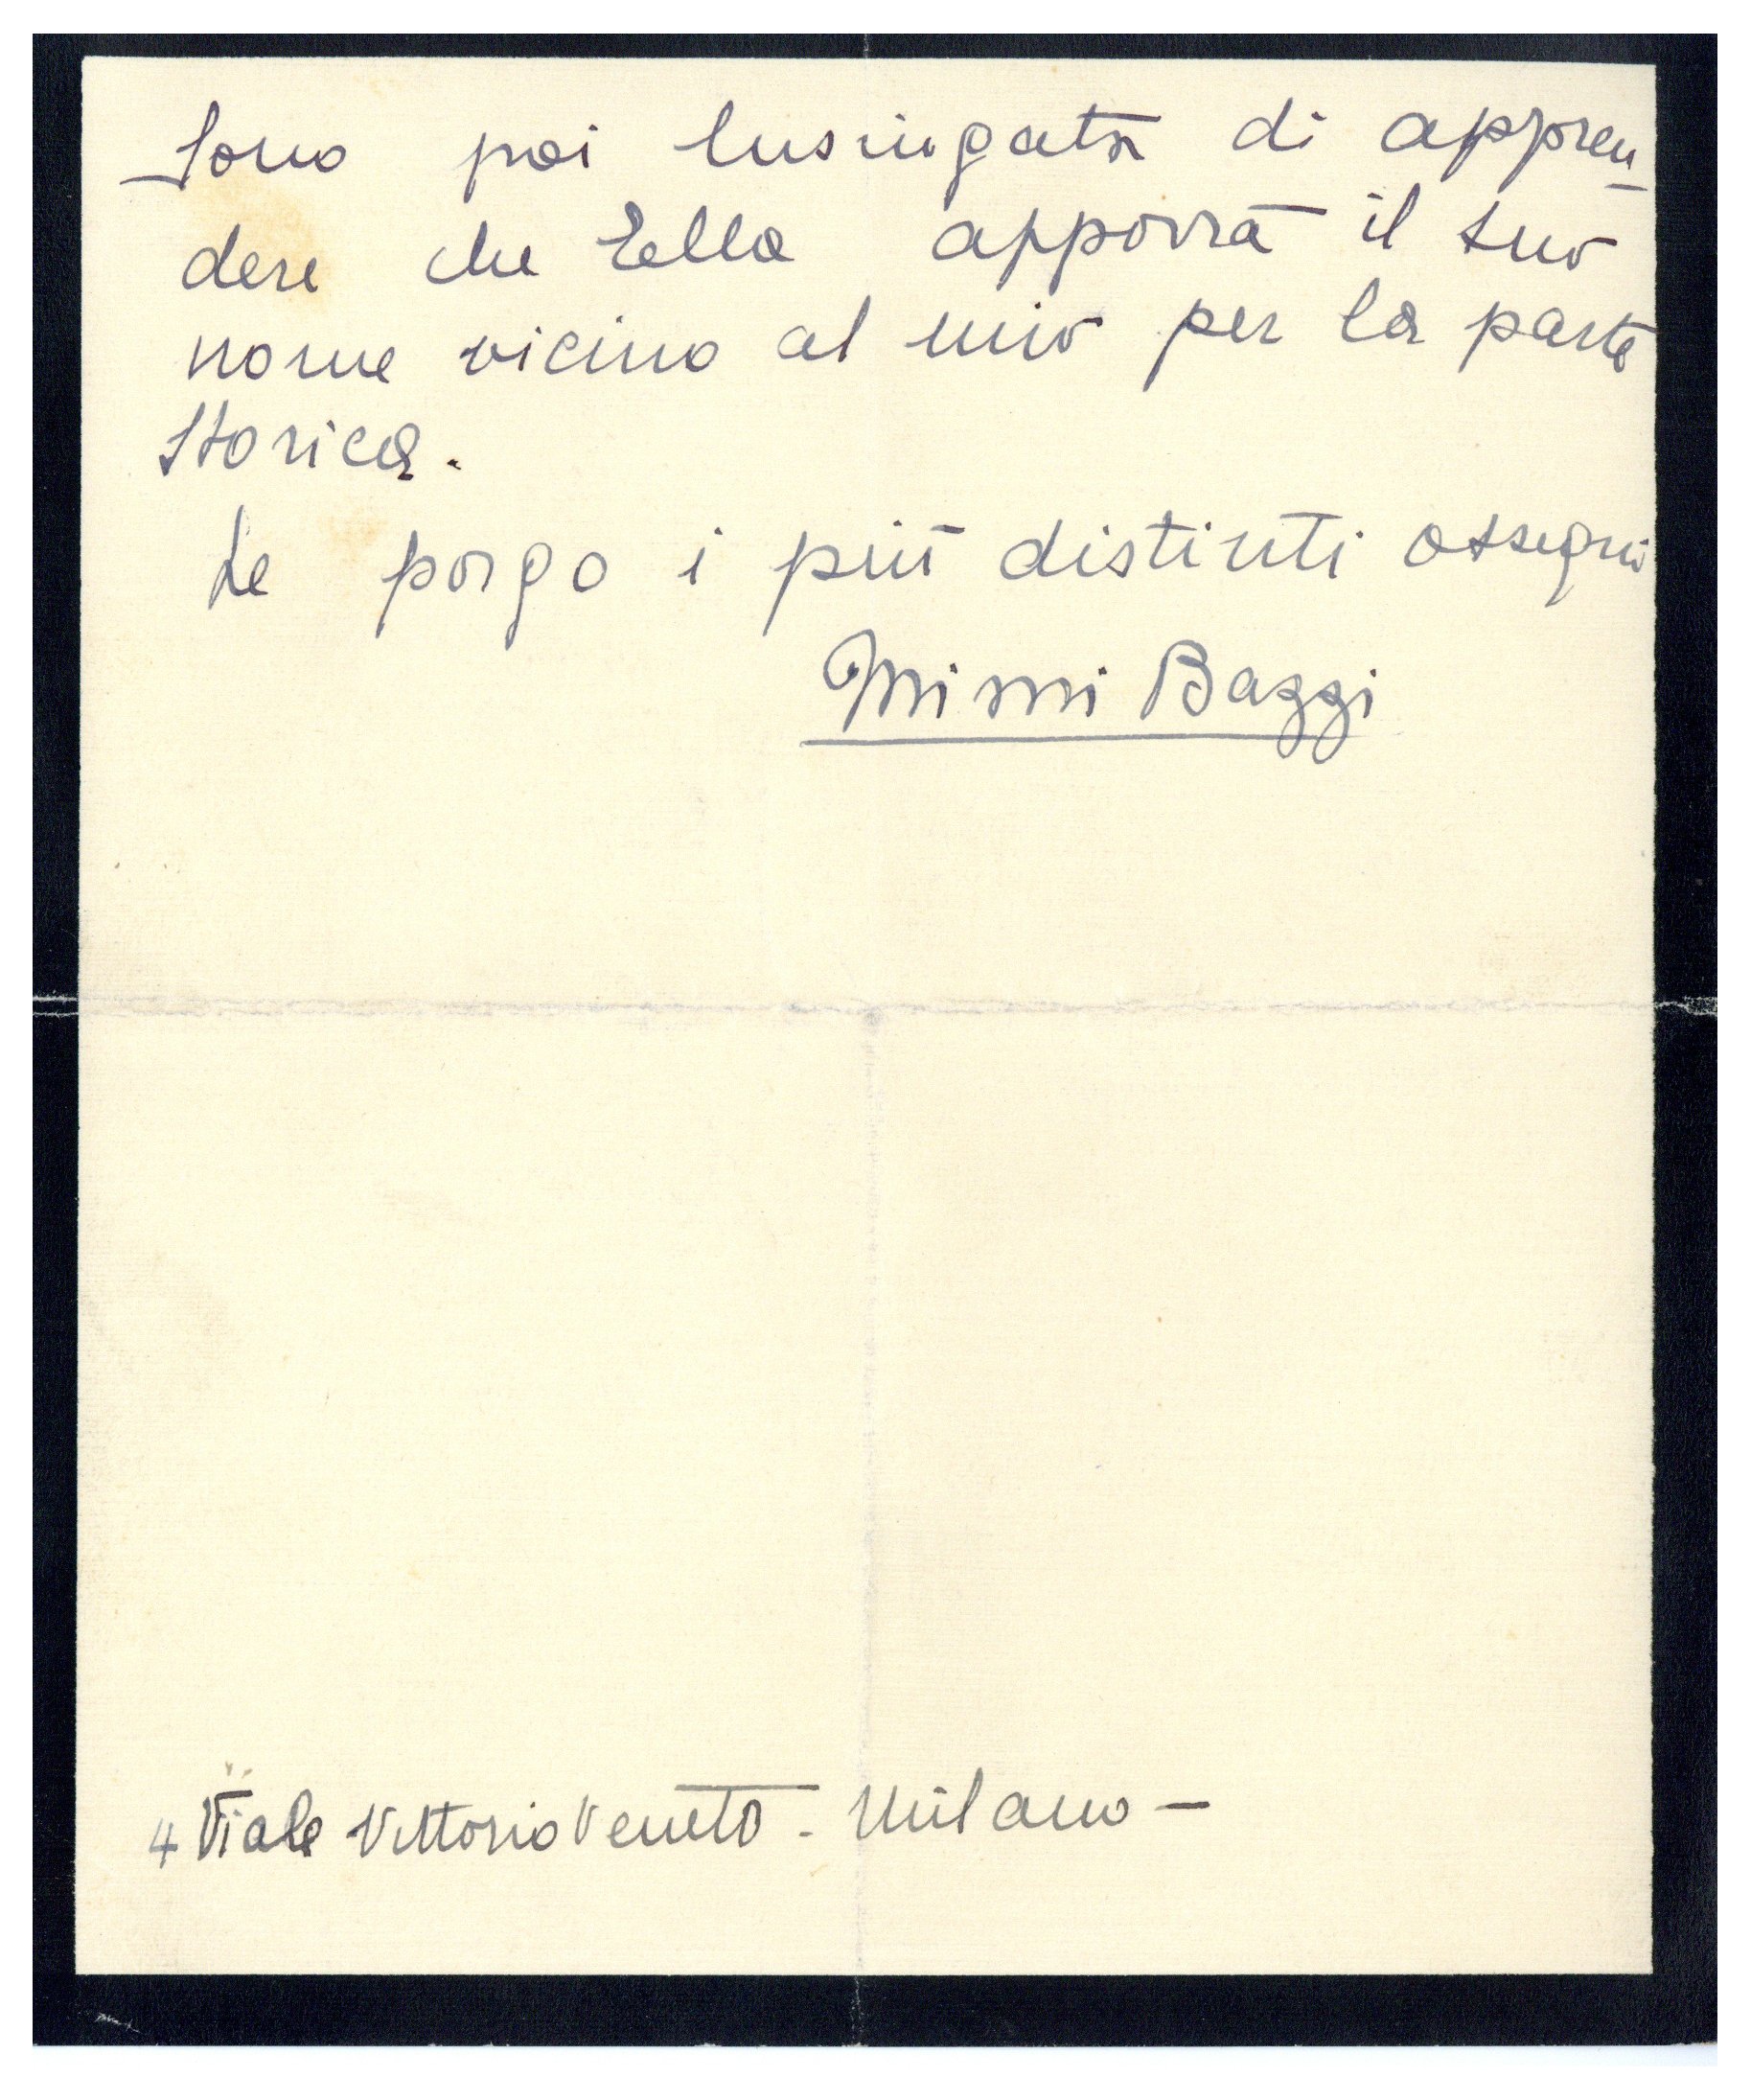 Sono poi lusingata di appren_
dere che Ella apporrà il suo
nome vicino al mio per la parte
storica.
Le porgo i più distinti ossequi
Mimi Bazzi
4 Viale Vittorio Veneto - Milano -